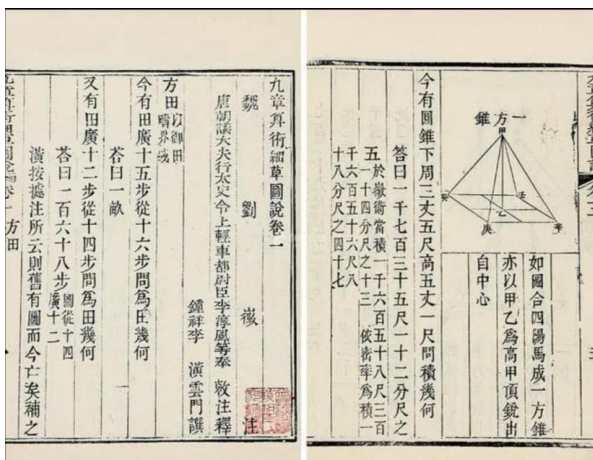 一方錐
甲
壬
癸
乙
辛
庚
如圖合四陽馬成一方錐
亦以甲乙為高甲頂銳出
自中心
今有圓錐下周三丈五尺高五丈一尺問積幾何
答曰一千七百三十五尺一十二分尺之
五 於徽術當積一千六百五十八尺三百
一十四分尺之十三 依密率為積一
千六百五十六尺八
十八分尺之四十七
九章算術細草圖說卷一
魏 劉 徽 注
唐朝議大夫行太史令上輕車都尉臣李淳風等奉 敕注釋
鍾祥李 潢雲門譔
方田 以御田
疇界域
今有田廣十五步從十六步問為田幾何
荅曰一畝
又有田廣十二步從十四步問為田幾何
荅曰一百六十八步 圖從十四
廣十二
潢按據注所云則舊有圖而今亡矣補之
方田